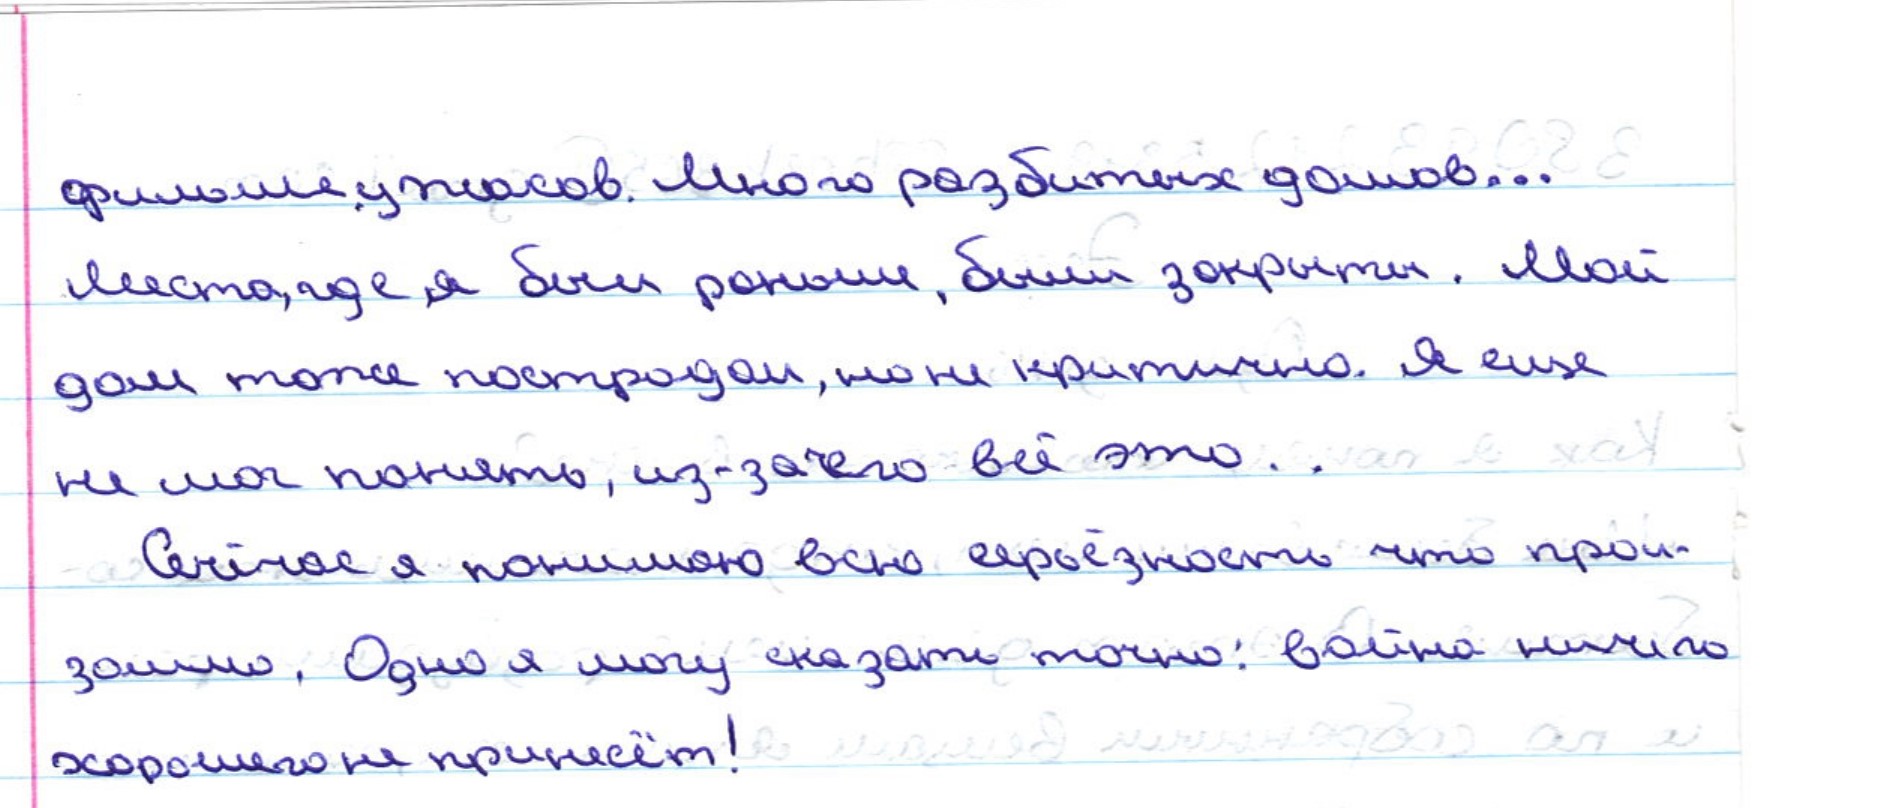 фильме ужасов. Много разбитых домов...
Места, где я был раньше, были закрыты. Мой
дом тоже пострадал, но не критично. Я еще
не мог понять, из-за чего всё это..
Сейчас я понимаю всю серьёзность что прои-
зошло. Одно я могу сказать точно: война ничего
хорошего не принесёт!